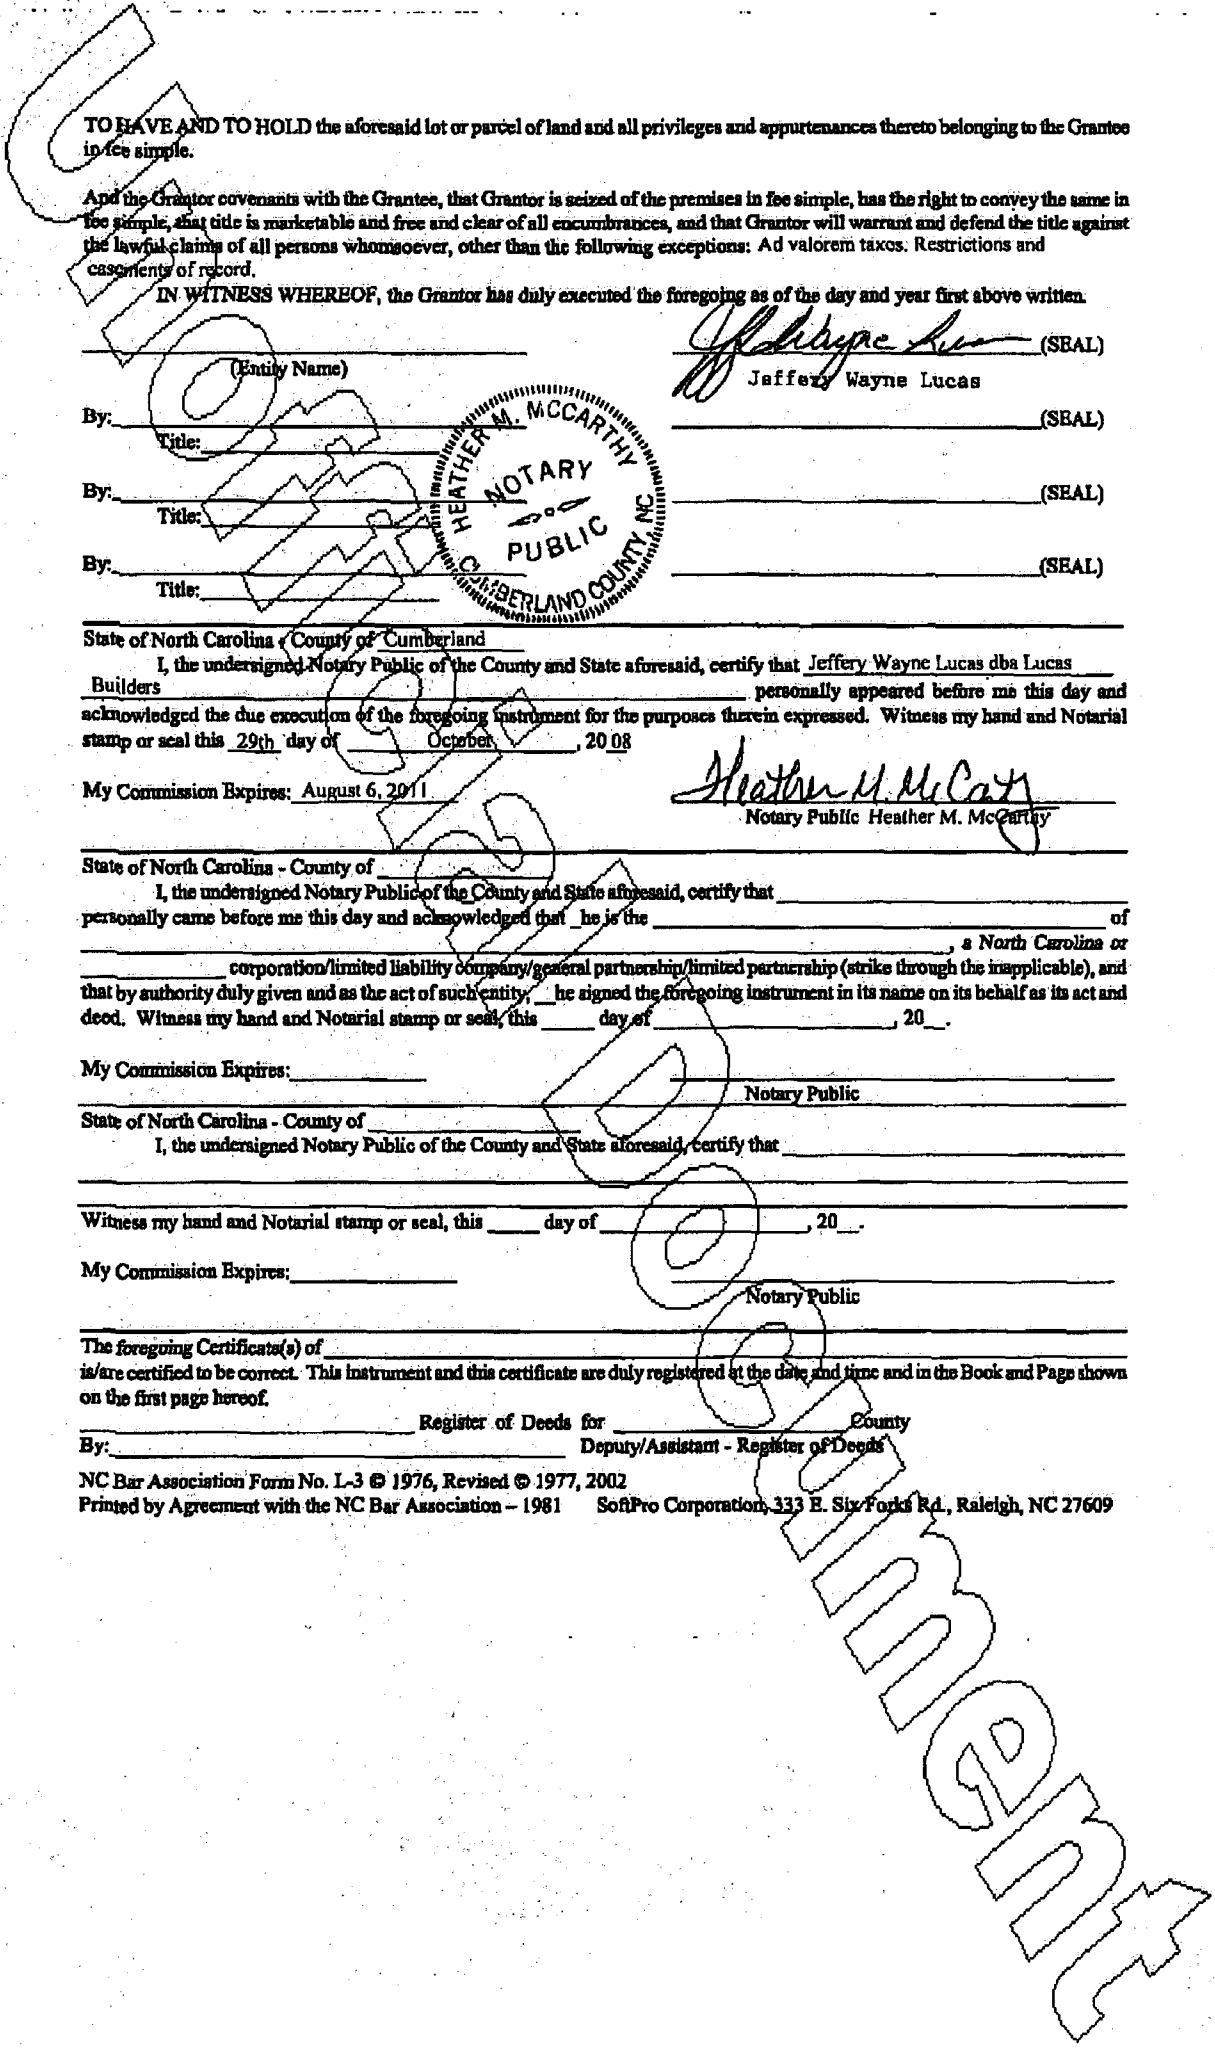 TO HAVE AND TO HOLD the aforesaid lot or parcel of land and all privileges and appurtenances thereto belonging to the Grantee
in fee simple.
And the Grantor covenants with the Grantee, that Grantor is seized of the premises in fee simple, has the right to convey the same in
fee simple, that title is marketable and free and clear of all encumbrances, and that Grantor will warrant and defend the title against
the lawful claims of all persons whomsoever, other than the following exceptions: Ad valorem taxes. Restrictions and
easements of record.
IN WITNESS WHEREOF, the Grantor has duly executed the foregoing as of the day and year first above written.
Wayne (SEAL)
(Entity Name)
Jeffery Wayne Lucas
By: (SEAL)
Title:
By: (SEAL)
Title:
By: (SEAL)
Title:
HEATHER M. MCCARTHY
NOTARY
PUBLIC
CUMBERLAND COUNTY, NC
State of North Carolina - County of Cumberland
I, the undersigned Notary Public of the County and State aforesaid, certify that Jeffery Wayne Lucas dba Lucas
Builders personally appeared before me this day and
acknowledged the due execution of the foregoing instrument for the purposes therein expressed. Witness my hand and Notarial
stamp or seal this 29th day of October, 20 08
My Commission Expires: August 6, 2011 Heather M. McCarthy
Notary Public Heather M. McCarthy
State of North Carolina - County of
I, the undersigned Notary Public of the County and State aforesaid, certify that
personally came before me this day and acknowledged that _he is the of
, a North Carolina or
corporation/limited liability company/general partnership/limited partnership (strike through the inapplicable), and
that by authority duly given and as the act of such entity, __he signed the foregoing instrument in its name on its behalf as its act and
deed. Witness my hand and Notarial stamp or seal, this ____ day of ____, 20__.
My Commission Expires:
Notary Public
State of North Carolina - County of
I, the undersigned Notary Public of the County and State aforesaid, certify that
Witness my hand and Notarial stamp or seal, this ____ day of ____, 20__.
My Commission Expires:
Notary Public
The foregoing Certificate(s) of
is/are certified to be correct. This instrument and this certificate are duly registered at the date and time and in the Book and Page shown
on the first page hereof.
Register of Deeds for County
By: Deputy/Assistant - Register of Deeds
NC Bar Association Form No. L-3 © 1976, Revised © 1977, 2002
Printed by Agreement with the NC Bar Association – 1981 SoftPro Corporation, 333 E. Six Forks Rd., Raleigh, NC 27609
Unofficial Document